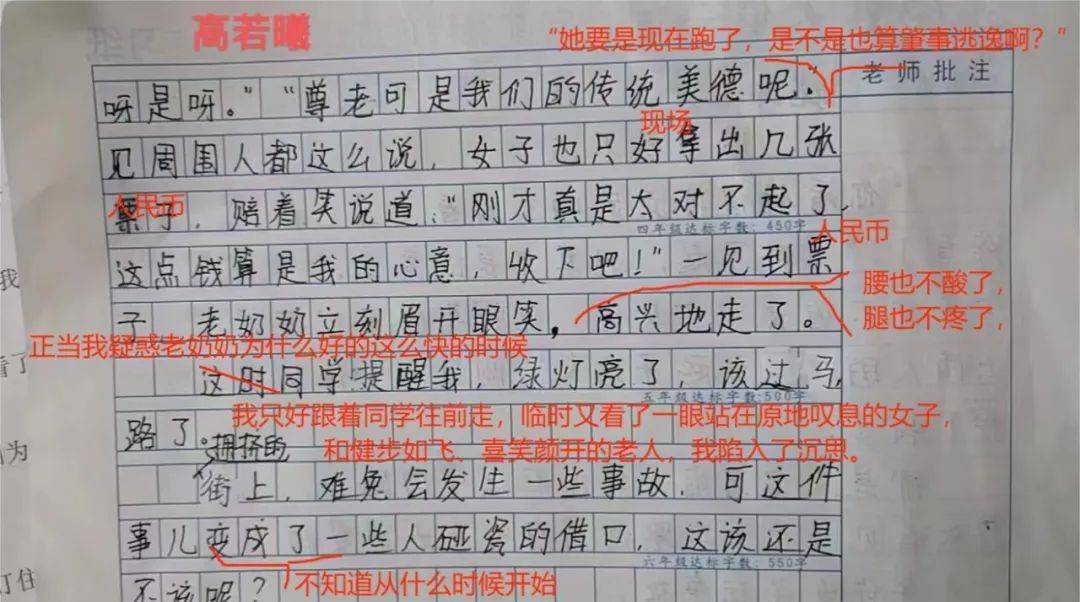 高若曦
“她要是现在跑了，是不是也算肇事逃逸啊？”
老师批注
呀是呀。”“尊老可是我们的传统美德呢。”
现场
见周围人都这么说，女子也只好拿出几张
人民币
票子，赔着笑说道：“刚才真是太对不起了，
四年级达标字数：450字
人民币
这点钱算是我的心意，收下吧！”一见到票
腰也不酸了，
腿也不疼了，
子 老奶奶立刻眉开眼笑，高兴地走了。
正当我疑惑老奶奶为什么好的这么快的时候
这时同学提醒我，绿灯亮了，该过马
五年级达标字数：500字
我只好跟着同学往前走，临时又看了一眼站在原地叹息的女子，
路了。
拥挤的
和健步如飞、喜笑颜开的老人，我陷入了沉思。
街上，难免会发生一些事故，可这件
事儿变成了一些人碰瓷的借口，这该还是
六年级达标字数：550字
不知道从什么时候开始
不该呢？